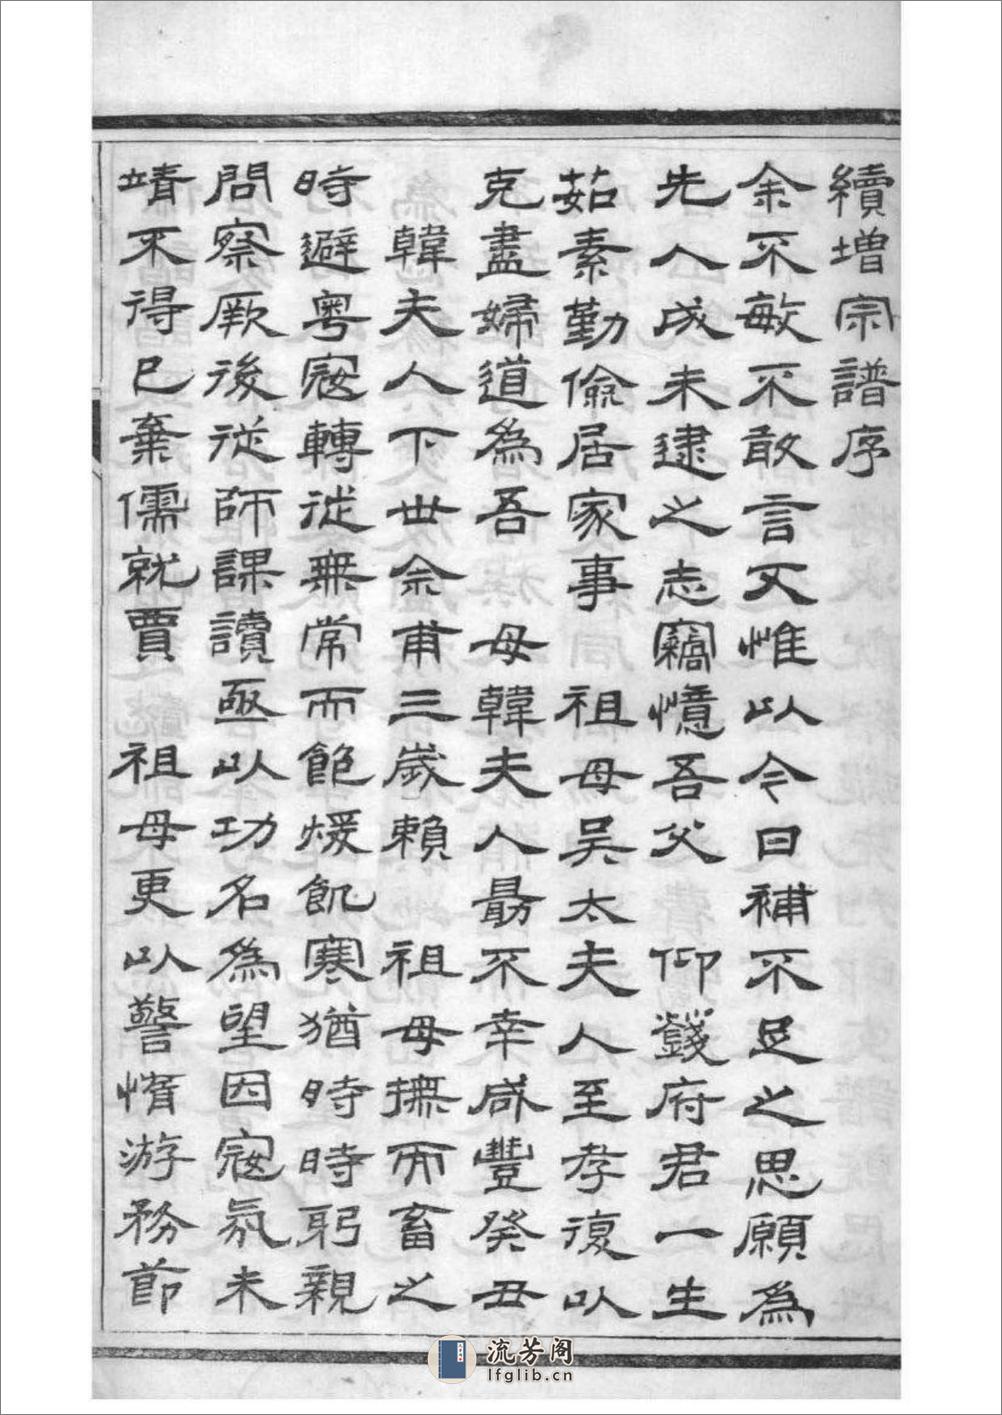 續增宗譜序
余不敏不敢言文惟以今日補不足之思願為
先人成未逮之志竊憶吾父 仰錢府君一生
茹素勤儉居家事 祖母吳太夫人至孝復以
克盡婦道為吾 母韓夫人最不幸咸豐癸丑
韓夫人下世余甫三歲賴 祖母撫而畜之
時避粵寇轉徙無常而飽煖飢寒猶時時躬親
問察厥後從師課讀亟以功名為望因寇氛未
靖不得已棄儒就賈 祖母更以警惰游務節
流芳阁
lfglib.cn